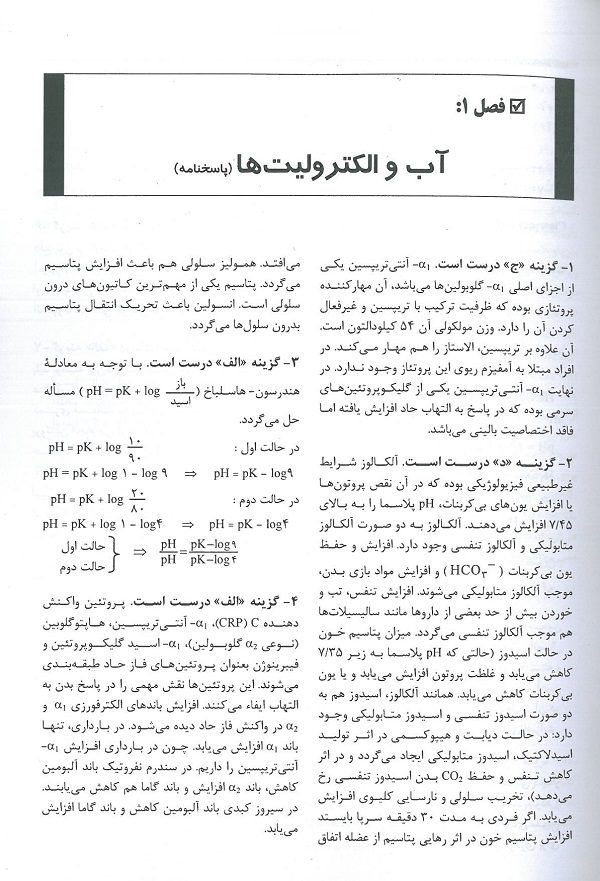 فصل ۱:
آب و الکترولیت‌ها (پاسخنامه)
۱- گزینه «ج» درست است. α۱- آنتی‌تریپسین یکی
از اجزای اصلی α۱- گلوبولین‌ها می‌باشد، آن مهارکننده
پروتئازی بوده که ظرفیت ترکیب با تریپسین و غیرفعال
کردن آن را دارد. وزن مولکولی آن ۵۴ کیلودالتون است.
آن علاوه بر تریپسین، الاستاز را هم مهار می‌کند. در
افراد مبتلا به آمفیزم ریوی این پروتئاز وجود ندارد. در
نهایت α۱- آنتی‌تریپسین یکی از گلیکوپروتئین‌های
سرمی بوده که در پاسخ به التهاب حاد افزایش یافته اما
فاقد اختصاصیت بالینی می‌باشد.
۲- گزینه «د» درست است. آلکالوز شرایط
غیرطبیعی فیزیولوژیکی بوده که در آن نقص پروتون‌ها
یا افزایش یون‌های بی‌کربنات، pH پلاسما را به بالای
۷/۴۵ افزایش می‌دهند. آلکالوز به دو صورت آلکالوز
متابولیکی و آلکالوز تنفسی وجود دارد. افزایش و حفظ
یون بی‌کربنات (HCO۳⁻) و افزایش مواد بازی بدن،
موجب آلکالوز متابولیکی می‌شوند. افزایش تنفس، تب و
خوردن بیش از حد بعضی از داروها مانند سالیسیلات‌ها
هم موجب آلکالوز تنفسی می‌گردد. میزان پتاسیم خون
در حالت اسیدوز (حالتی که pH پلاسما به زیر ۷/۳۵
کاهش می‌یابد و غلظت پروتون افزایش می‌یابد و یا یون
بی‌کربنات کاهش می‌یابد. همانند آلکالوز، اسیدوز هم به
دو صورت اسیدوز تنفسی و اسیدوز متابولیکی وجود
دارد: در حالت دیابت و هیپوکسمی در اثر تولید
اسیدلاکتیک، اسیدوز متابولیکی ایجاد می‌گردد و در اثر
کاهش تنفس و حفظ CO۲ بدن اسیدوز تنفسی رخ
می‌دهد)، تخریب سلولی و نارسایی کلیوی افزایش
می‌یابد. اگر فردی به مدت ۳۰ دقیقه سرپا بایستد
افزایش پتاسیم خون در اثر رهایی پتاسیم از عضله اتفاق
می‌افتد. همولیز سلولی هم باعث افزایش پتاسیم
می‌گردد. پتاسیم یکی از مهم‌ترین کاتیون‌های درون
سلولی است. انسولین باعث تحریک انتقال پتاسیم
بدرون سلول‌ها می‌گردد.
۳- گزینه «الف» درست است. با توجه به معادلهٔ
هندرسون- هاسلباخ (pH = pK + log باز/اسید) مسأله
حل می‌گردد.
در حالت اول : pH = pK + log ۱۰/۹۰
pH = pK + log ۱ − log ۹ ⇒ pH = pK − log۹
در حالت دوم : pH = pK + log ۲۰/۸۰
pH = pK + log ۱ − log۴ ⇒ pH = pK − log۴
حالت اول
حالت دوم } ⇒ pH/pH = pK−log۹/pK−log۴
۴- گزینه «الف» درست است. پروتئین واکنش
دهنده C (CRP)، α۱- آنتی‌تریپسین، هاپتوگلوبین
(نوعی α۲ گلوبولین)، α۱- اسید گلیکوپروتئین و
فیبرینوژن بعنوان پروتئین‌های فاز حاد طبقه‌بندی
می‌شوند. این پروتئین‌ها نقش مهمی را در پاسخ بدن به
التهاب ایفاء می‌کنند. افزایش باندهای الکترفورزی α۱ و
α۲ در واکنش فاز حاد دیده می‌شود. در بارداری، تنها
باند α۱ افزایش می‌یابد. چون در بارداری افزایش α۱-
آنتی‌تریپسین را داریم. در سندرم نفروتیک باند آلبومین
کاهش، باند α۲ افزایش و باند گاما هم کاهش می‌یابند.
در سیروز کبدی باند آلبومین کاهش و باند گاما افزایش
می‌یابد.